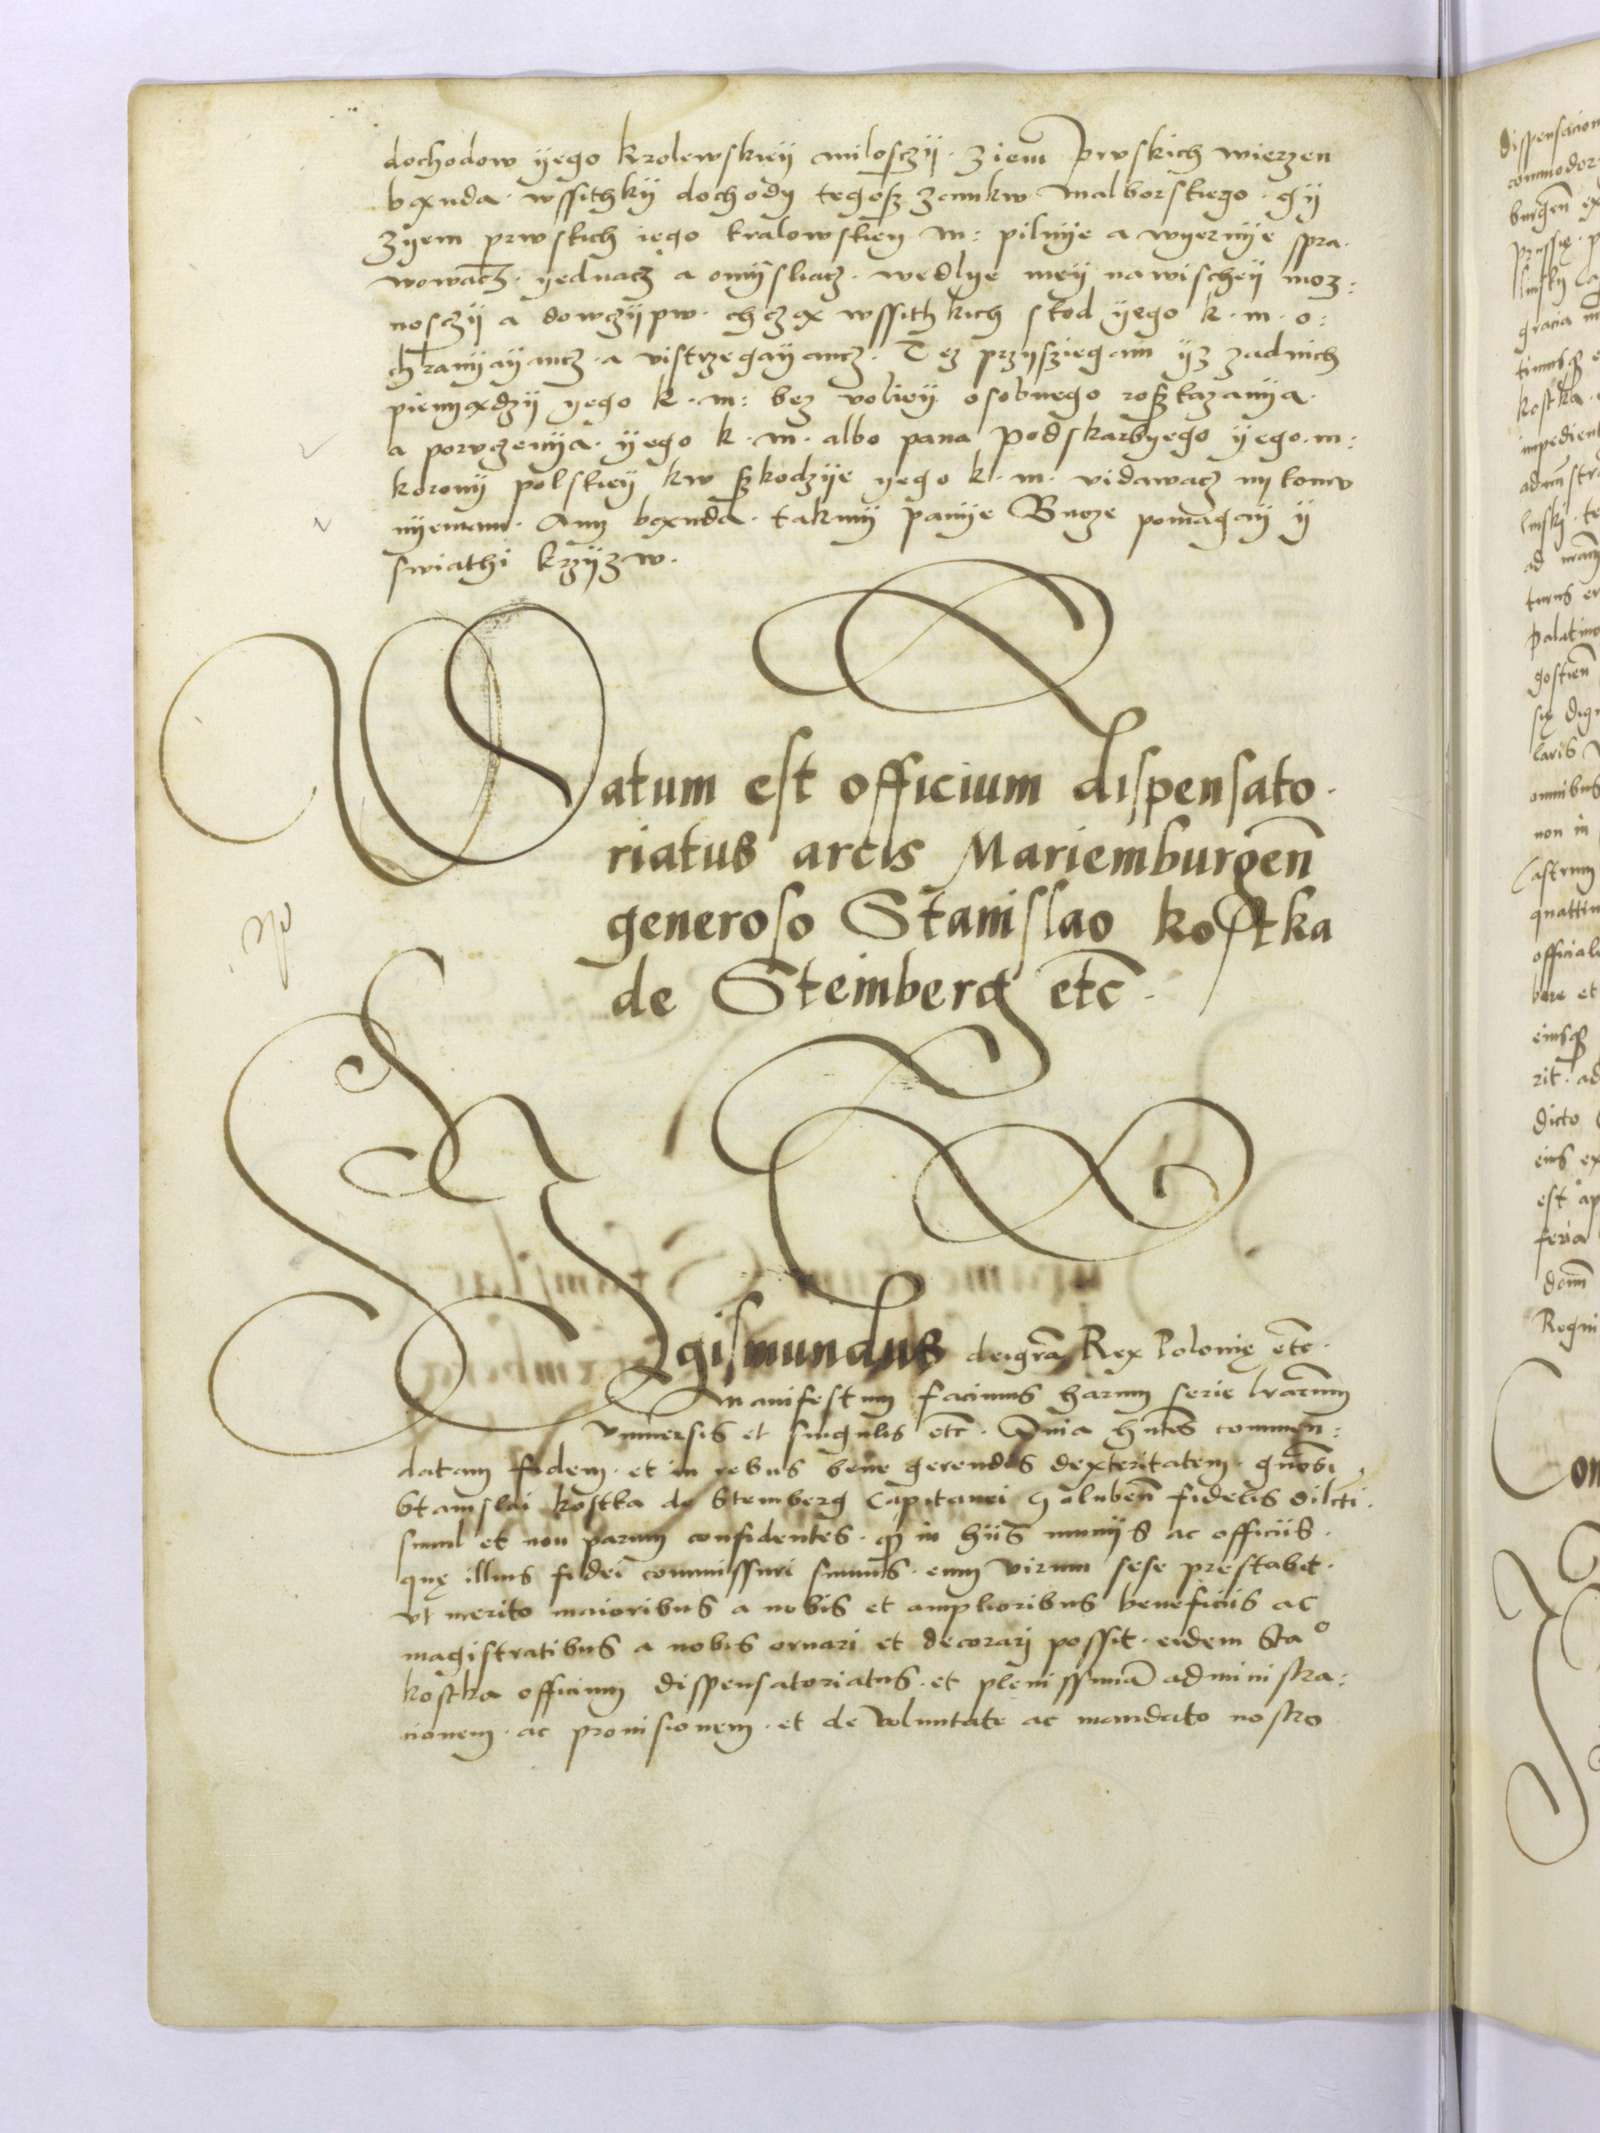 dochodow yego krolewskiey milosczy. ziem prwskich wierzen
bąnda. wssithky dochody tegosz zamkw malborskiego. gy
zyem prwskich iego kralowskiey m: pilnye a wyernye spra.
wowacz. yednacz a omysliacz. wedlye mey nawischey moz:
nosczy a dowczypw. chczą wssithkich skod yego k. m. o:
chranyayancz. a vistrzegayancz. Tez przysziegam yz zadnich
pienyądzy yego k. m: bez voliey osobnego roszkazanya.
a porvczenya. yego k. m. albo pana podskarbyego yego. m:
korony polskiey kw szkodzye yego k. m. vidawacz nykomv
nyemam. Any bąnda. takmy panye Buoze pomagay y
swiathi krzyzw.
Datum est officium dispensato.
riatus arcis Mariemburgen̄
generoso Stanislao kostka
de Steinberg etc̄.
Sigismundus dei gr̄a Rex Polonię etc̄.
Manifestum facimus harum serie lr̄arum
vniuersis et singulis etc̄. Quia hn̄tes commen:
datam fidem. et in rebus bene gerendis dexteritatem. gn̄osi
Stanislai kostka de Stemberg Capitanei Golubeñ fidelis dilcti.
simul et non parum confidentes. ꝙ in hiis munijs ac officiis.
quę illius fidei commissuri sumus. eum virum sese prestabit.
vt merito maioribus a nobis et amplioribus beneficiis ac
magistratibus a nobis ornari et decorari possit. eidem Staº
kostka officium dispensatoriatus. et plenissimā administra:
cionem. ac prouisionem. et de voluntate ac mandato nostro